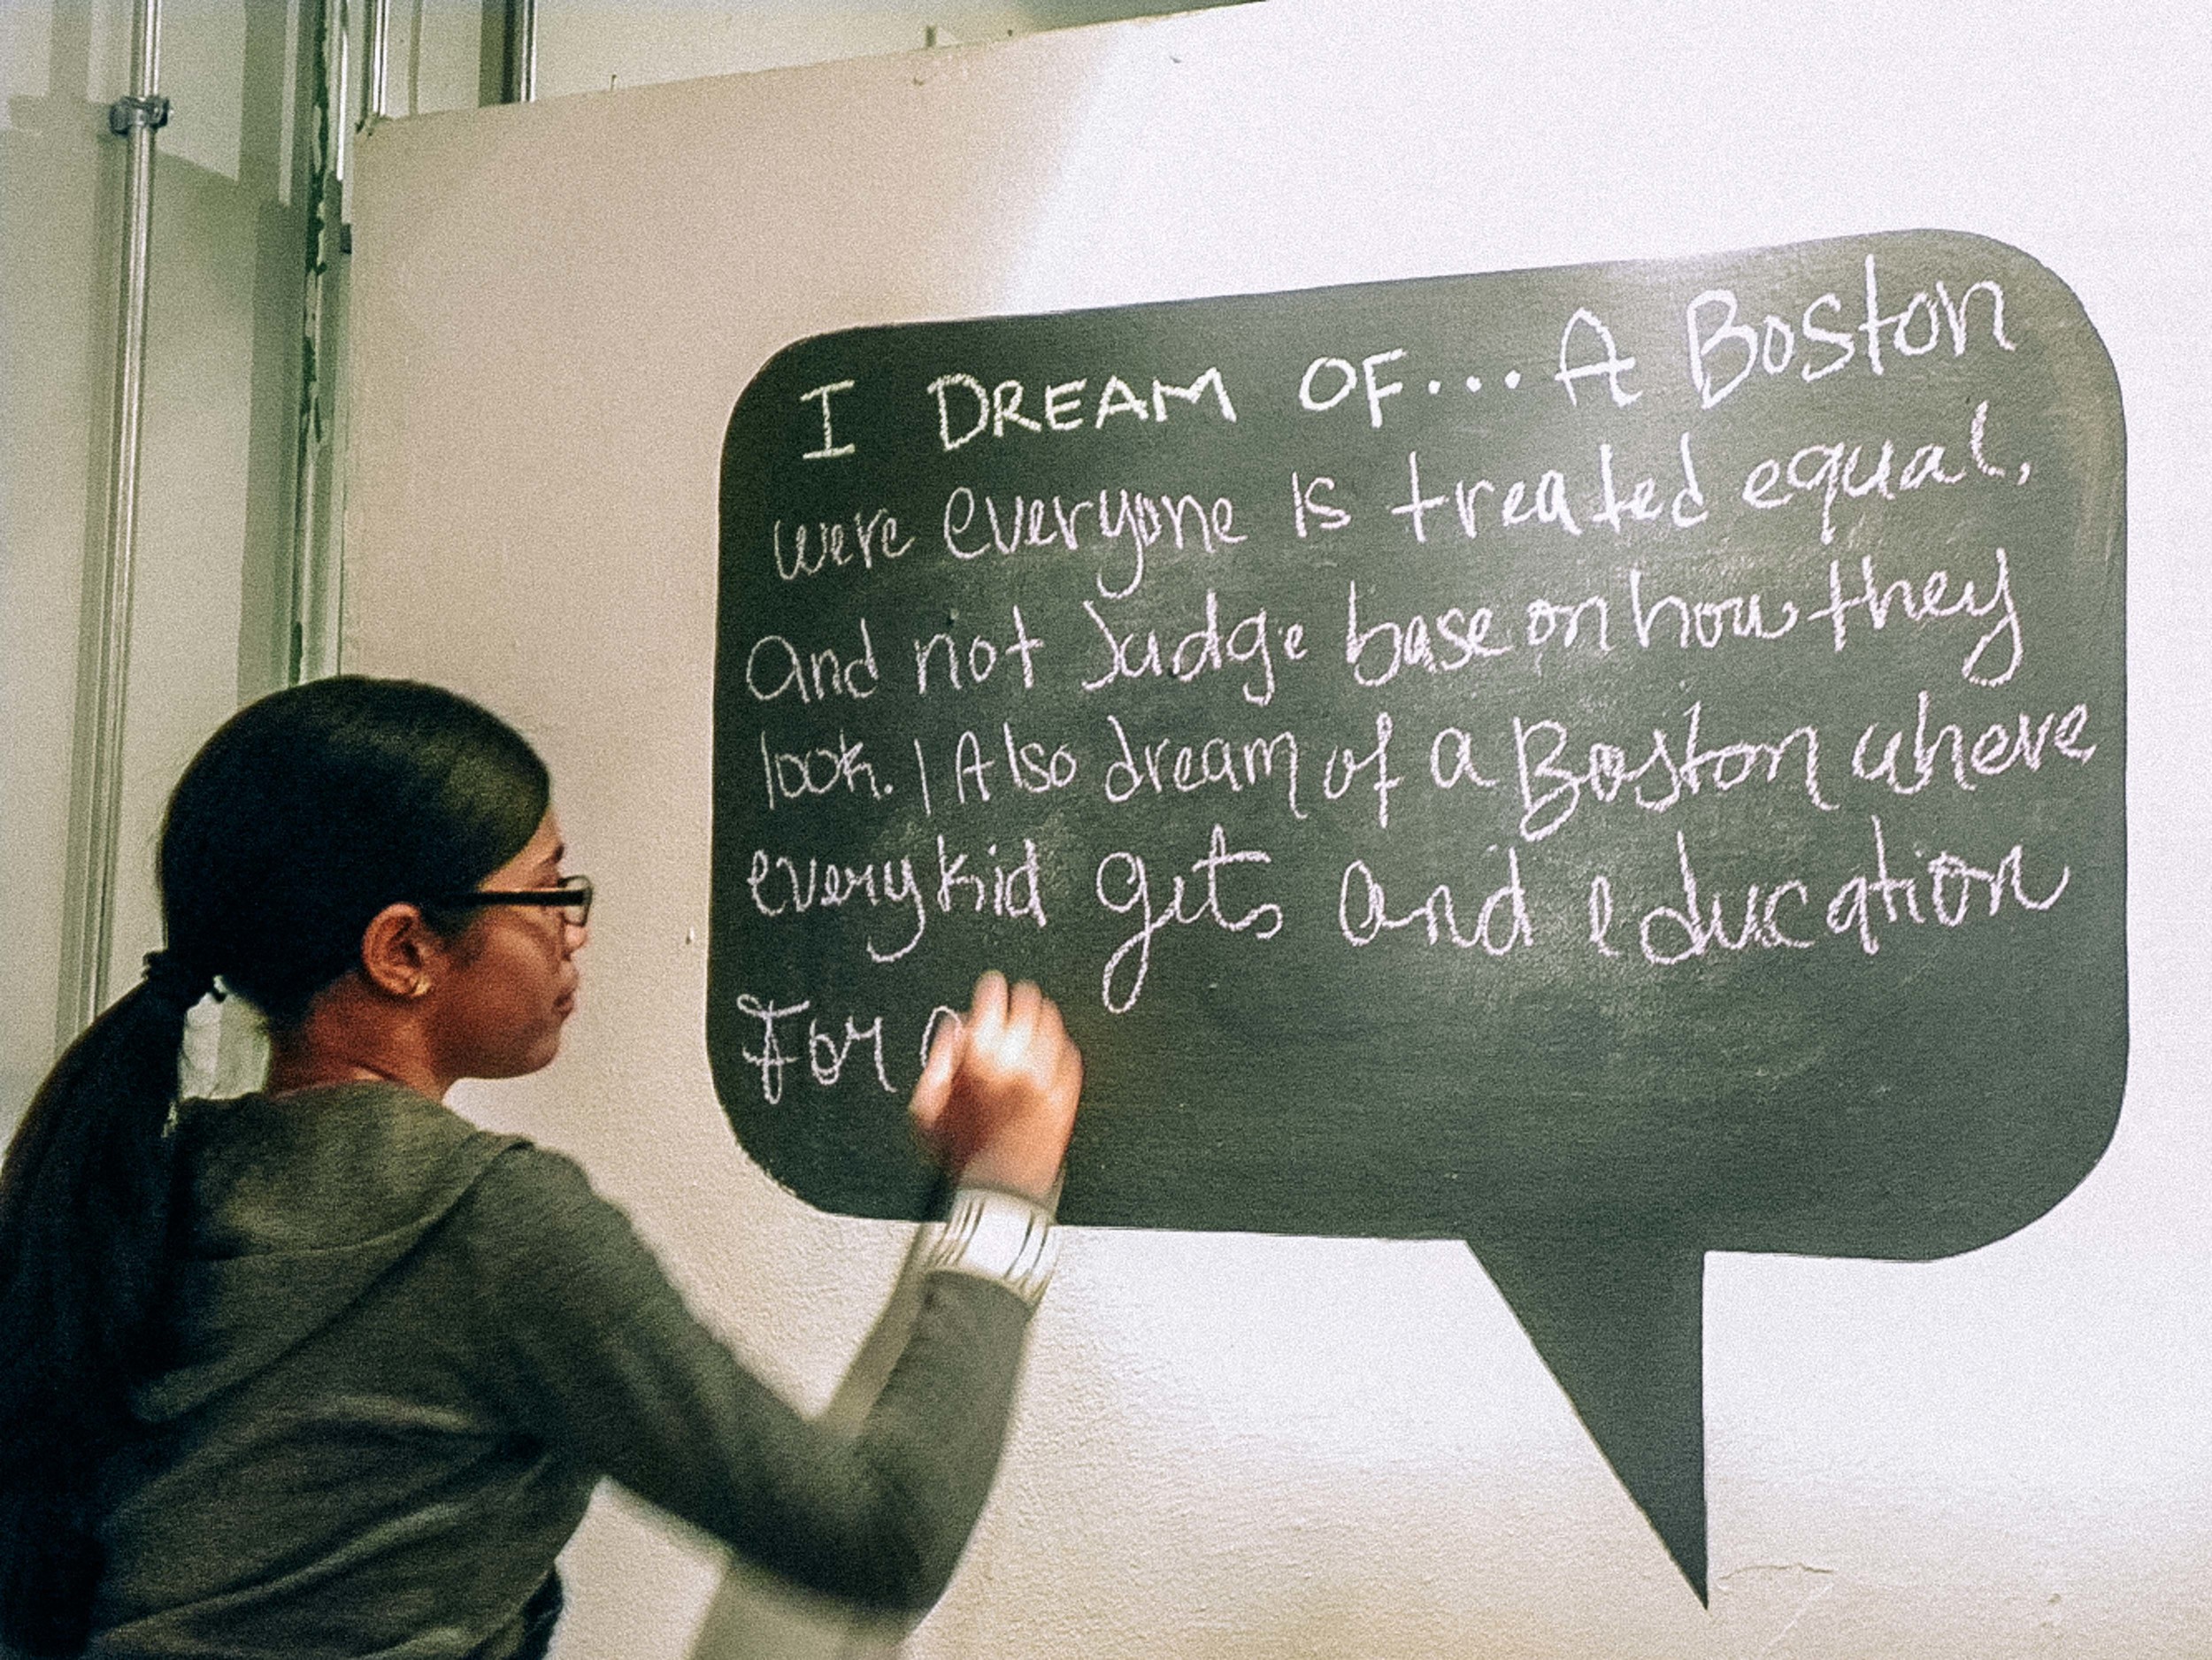 I DREAM OF... A Boston
were everyone is treated equal,
and not Judge base on how they
look. I Also dream of a Boston where
every kid gets and education
For